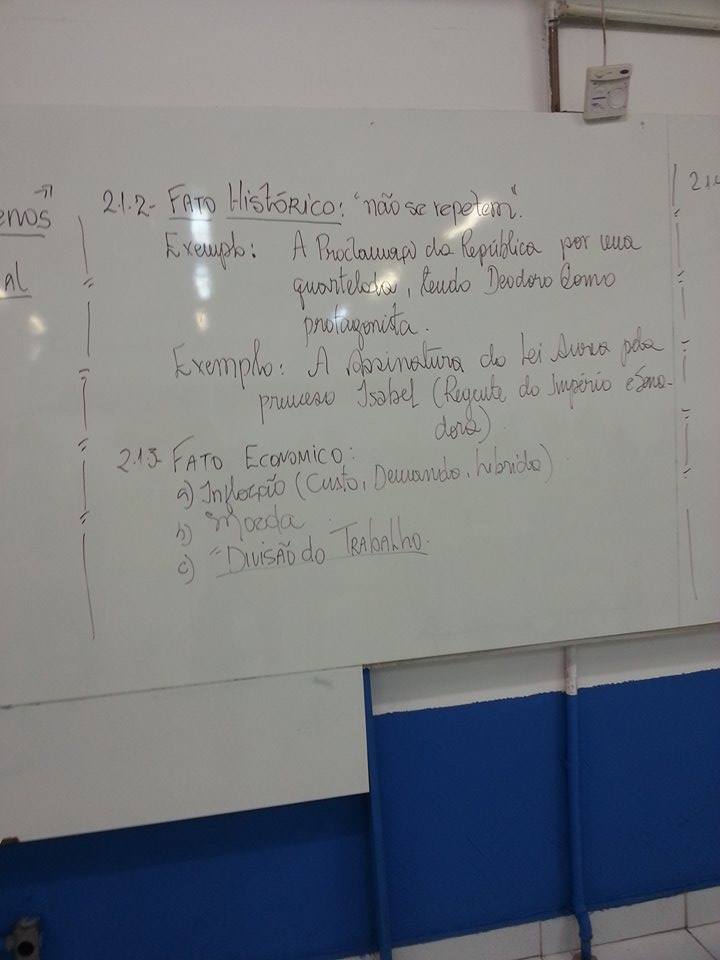 enos
al
2.1.2- Fato Histórico: "não se repetem".
Exemplo: A Proclamação da República por uma
quartelada, tendo Deodoro como
protagonista.
Exemplo: A Assinatura da Lei Aurea pela
princesa Isabel (Regente do Império e Sena-
dora).
2.1.3- Fato Economico:
a) Inflação (Custo, Demanda, híbrida).
b) Moeda.
c) "Divisão do Trabalho.
2.1.